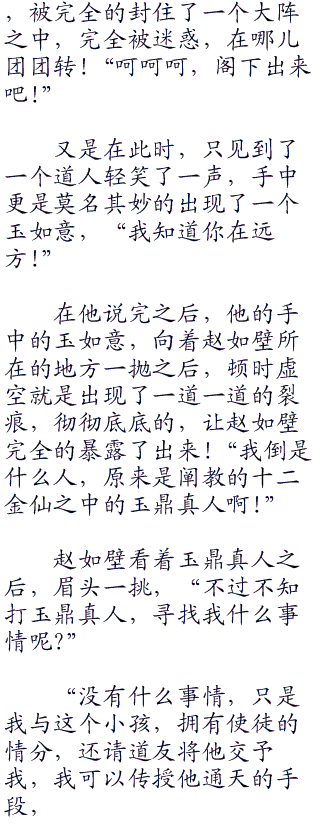 ，被完全的封住了一个大阵
之中，完全被迷惑，在哪儿
团团转！“呵呵呵，阁下出来
吧！”
又是在此时，只见到了
一个道人轻笑了一声，手中
更是莫名其妙的出现了一个
玉如意，“我知道你在远
方！”
在他说完之后，他的手
中的玉如意，向着赵如壁所
在的地方一抛之后，顿时虚
空就是出现了一道一道的裂
痕，彻彻底底的，让赵如壁
完全的暴露了出来！“我倒是
什么人，原来是阐教的十二
金仙之中的玉鼎真人啊！”
赵如壁看着玉鼎真人之
后，眉头一挑，“不过不知
打玉鼎真人，寻找我什么事
情呢？”
“没有什么事情，只是
我与这个小孩，拥有使徒的
情分，还请道友将他交予
我，我可以传授他通天的手
段，